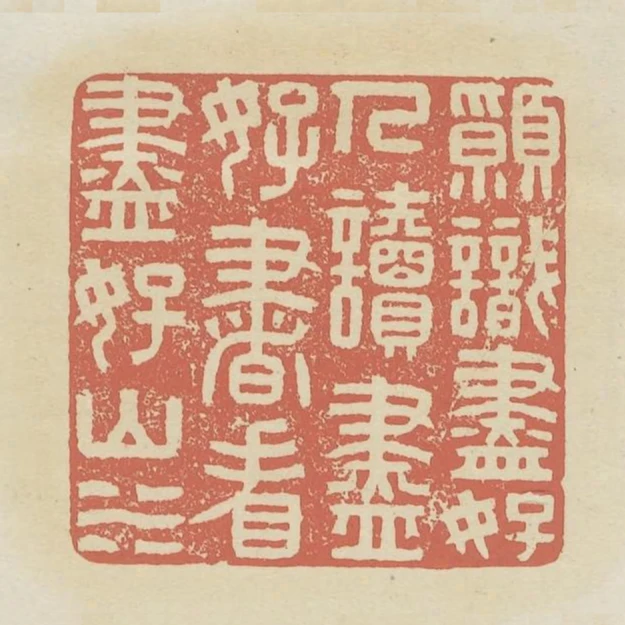 願識盡好
人讀盡
好書看
盡好山水